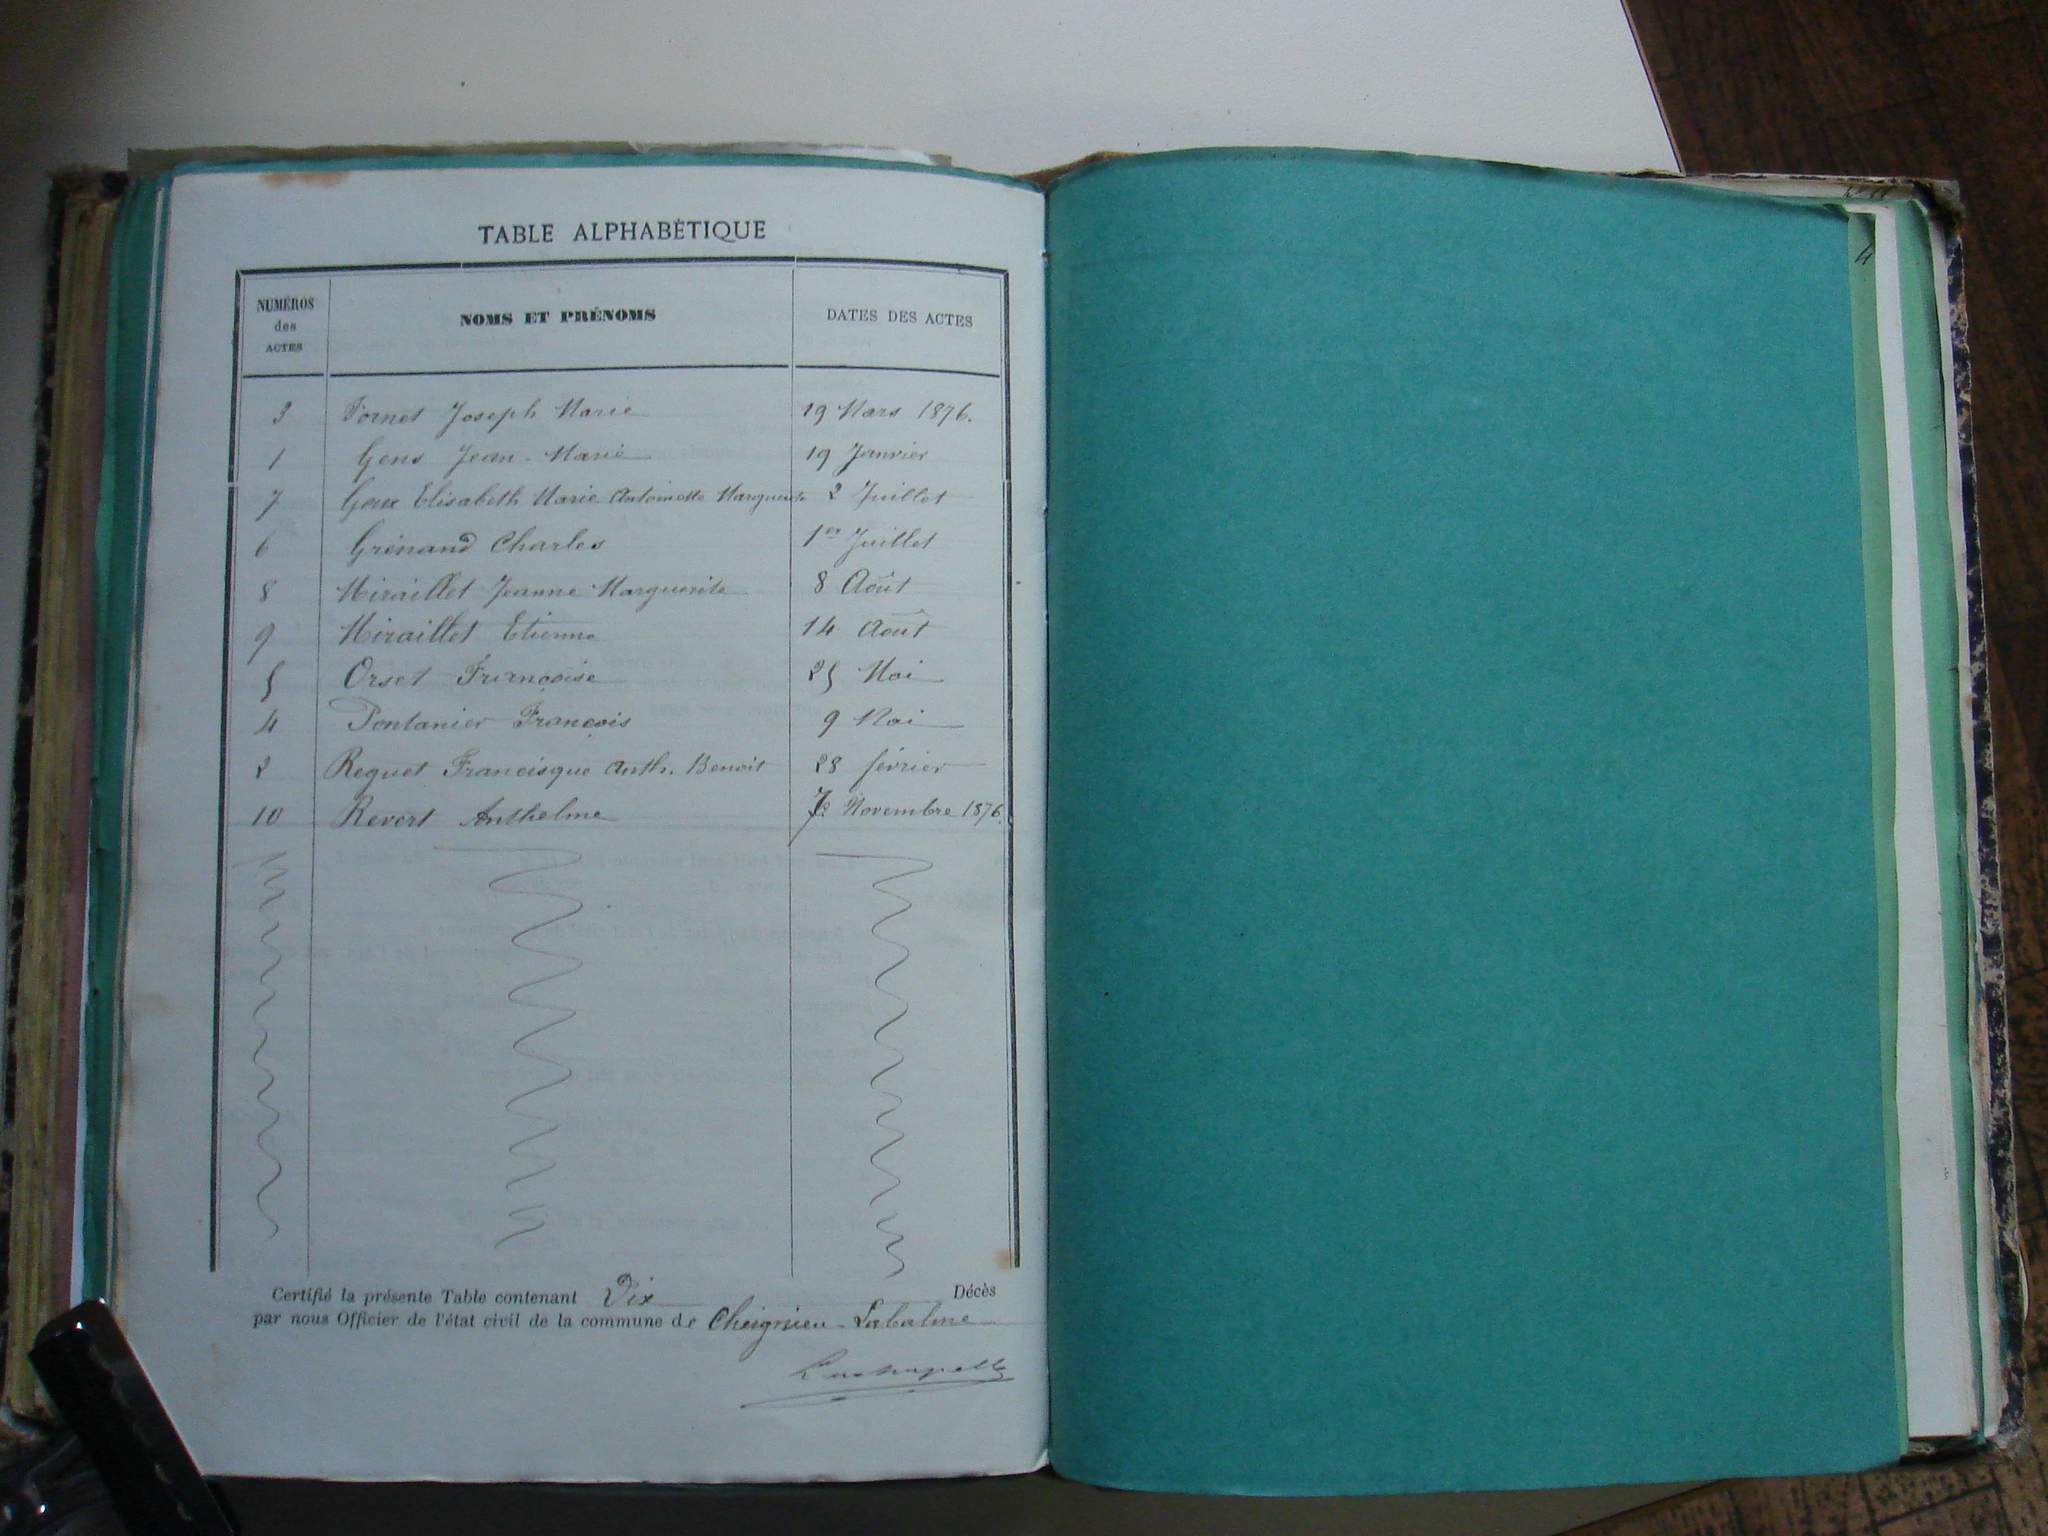 TABLE ALPHABÉTIQUE
NUMÉROS des ACTES NOMS ET PRÉNOMS DATES DES ACTES
3 Fornet Joseph Marie 19 Mars 1876.
1 Gens Jean-Marie 19 Janvier
7 Goux Elisabeth Marie Antoinette Marguerite 2 Juillet
6 Grénand Charles 1er Juillet
8 Miraillet Jeanne Marguerite 8 Août
9 Miraillet Etienne 14 Août
5 Orset Françoise 25 Mai
4 Pontanier François 9 Mai
2 Reguet Francisque Anth. Benoit 28 février
10 Revert Anthelme 7 Novembre 1876.
Certifié la présente Table contenant Dix Décès
par nous Officier de l'état civil de la commune de Cheignieu-Labalme
4